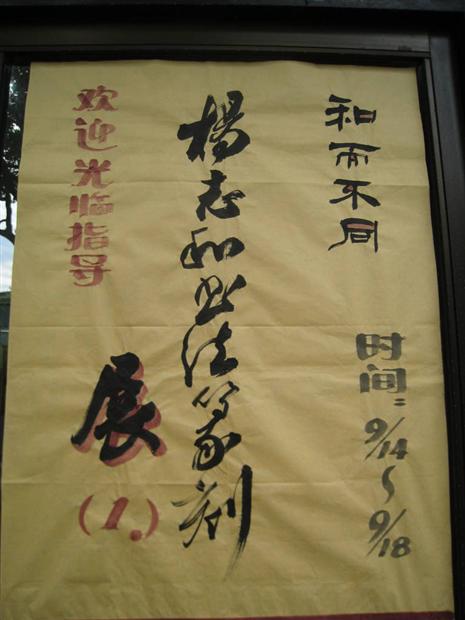 和而不同
时间：9/14～9/18
楊志和书法篆刻
展（1.）
欢迎光临指导